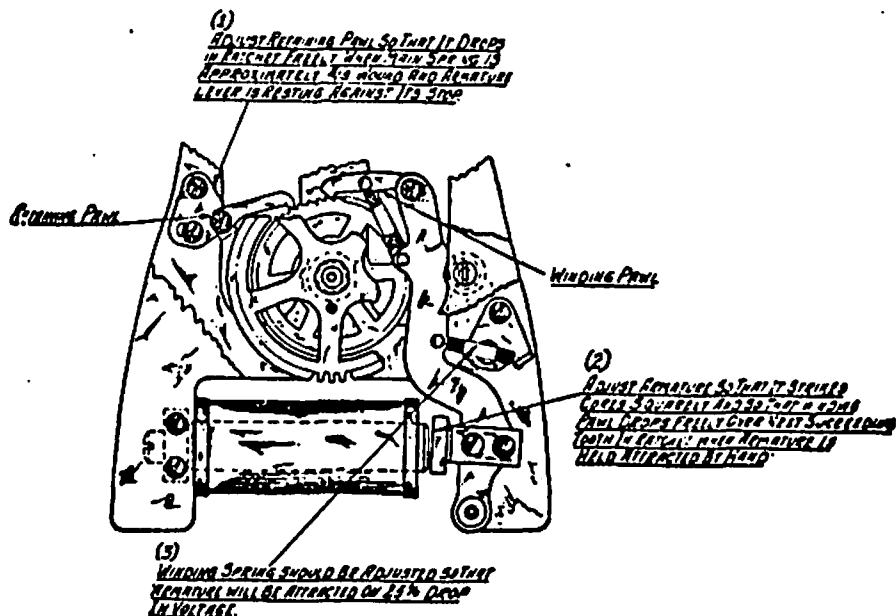 (1)
ADJUST RETAINING PAWL SO THAT IT DROPS
IN RATCHET FREELY WHEN MAIN SPRING IS
APPROXIMATELY WOUND AND ARMATURE
LEVER IS RESTING AGAINST ITS STOP
RETAINING PAWL
WINDING PAWL
(2)
ADJUST ARMATURE SO THAT IT STRIKES
CORES SQUARELY AND SO THAT WINDING
PAWL DROPS FREELY OVER NEXT SUCCEEDING
TOOTH IN RATCHET WHEN ARMATURE IS
HELD ATTRACTED BY HAND
(3)
WINDING SPRING SHOULD BE ADJUSTED SO THAT
ARMATURE WILL BE ATTRACTED ON 25% DROP
IN VOLTAGE.